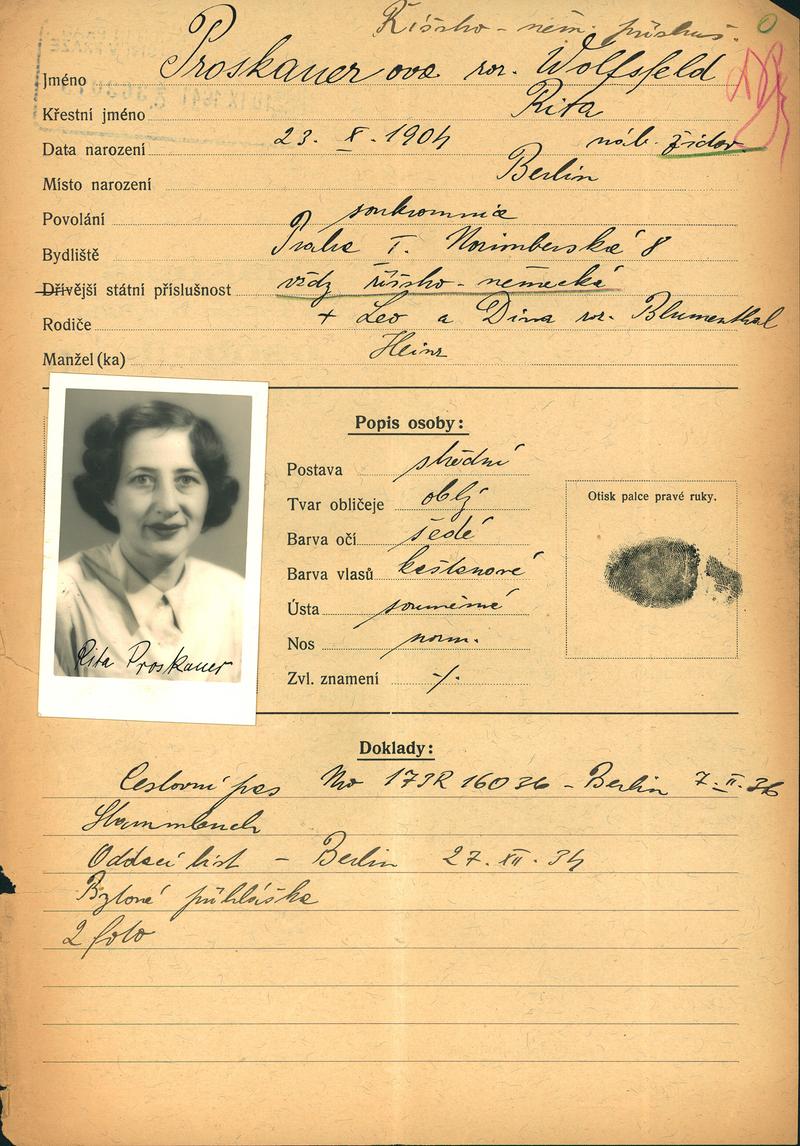 Říšsko-něm. přísluš.
Jméno Proskauerová roz. Wolfsfeld
Křestní jméno Rita
Data narození 23. X. 1904 náb. židov.
Místo narození Berlin
Povolání soukromnice
Bydliště Praha I. Norimberská 8
Dřívější státní příslušnost vždy říšsko-německá
Rodiče + Leo a Dina roz. Blumenthal
Manžel (ka) Heinz
Popis osoby:
Postava střední
Tvar obličeje oblý
Barva očí šedé
Barva vlasů kaštanové
Ústa souměrné
Nos norm.
Zvl. znamení -/.
Otisk palce pravé ruky.
Rita Proskauer
Doklady:
Cestovní pas No 173R 16036 - Berlin 7. II. 36
Stammbuch
Oddací list - Berlin 27. XII. 34
Bytová přihláška
2 foto